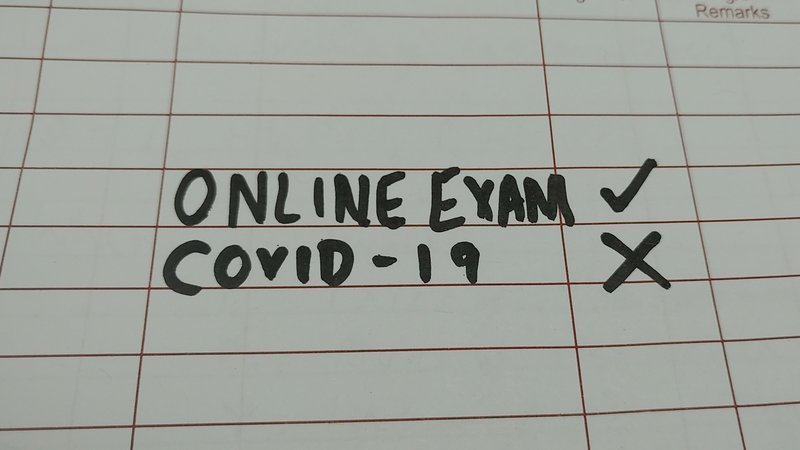 Remarks
ONLINE EXAM ✓
COVID-19 ✗